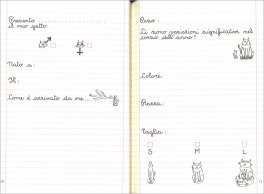 Presento ...
il mio gatto.
Nato a:
Il:
Come è arrivato da me...
Peso:
Ci sono variazioni significative nel
corso dell'anno?
Colore:
Razza:
Taglia:
S M L